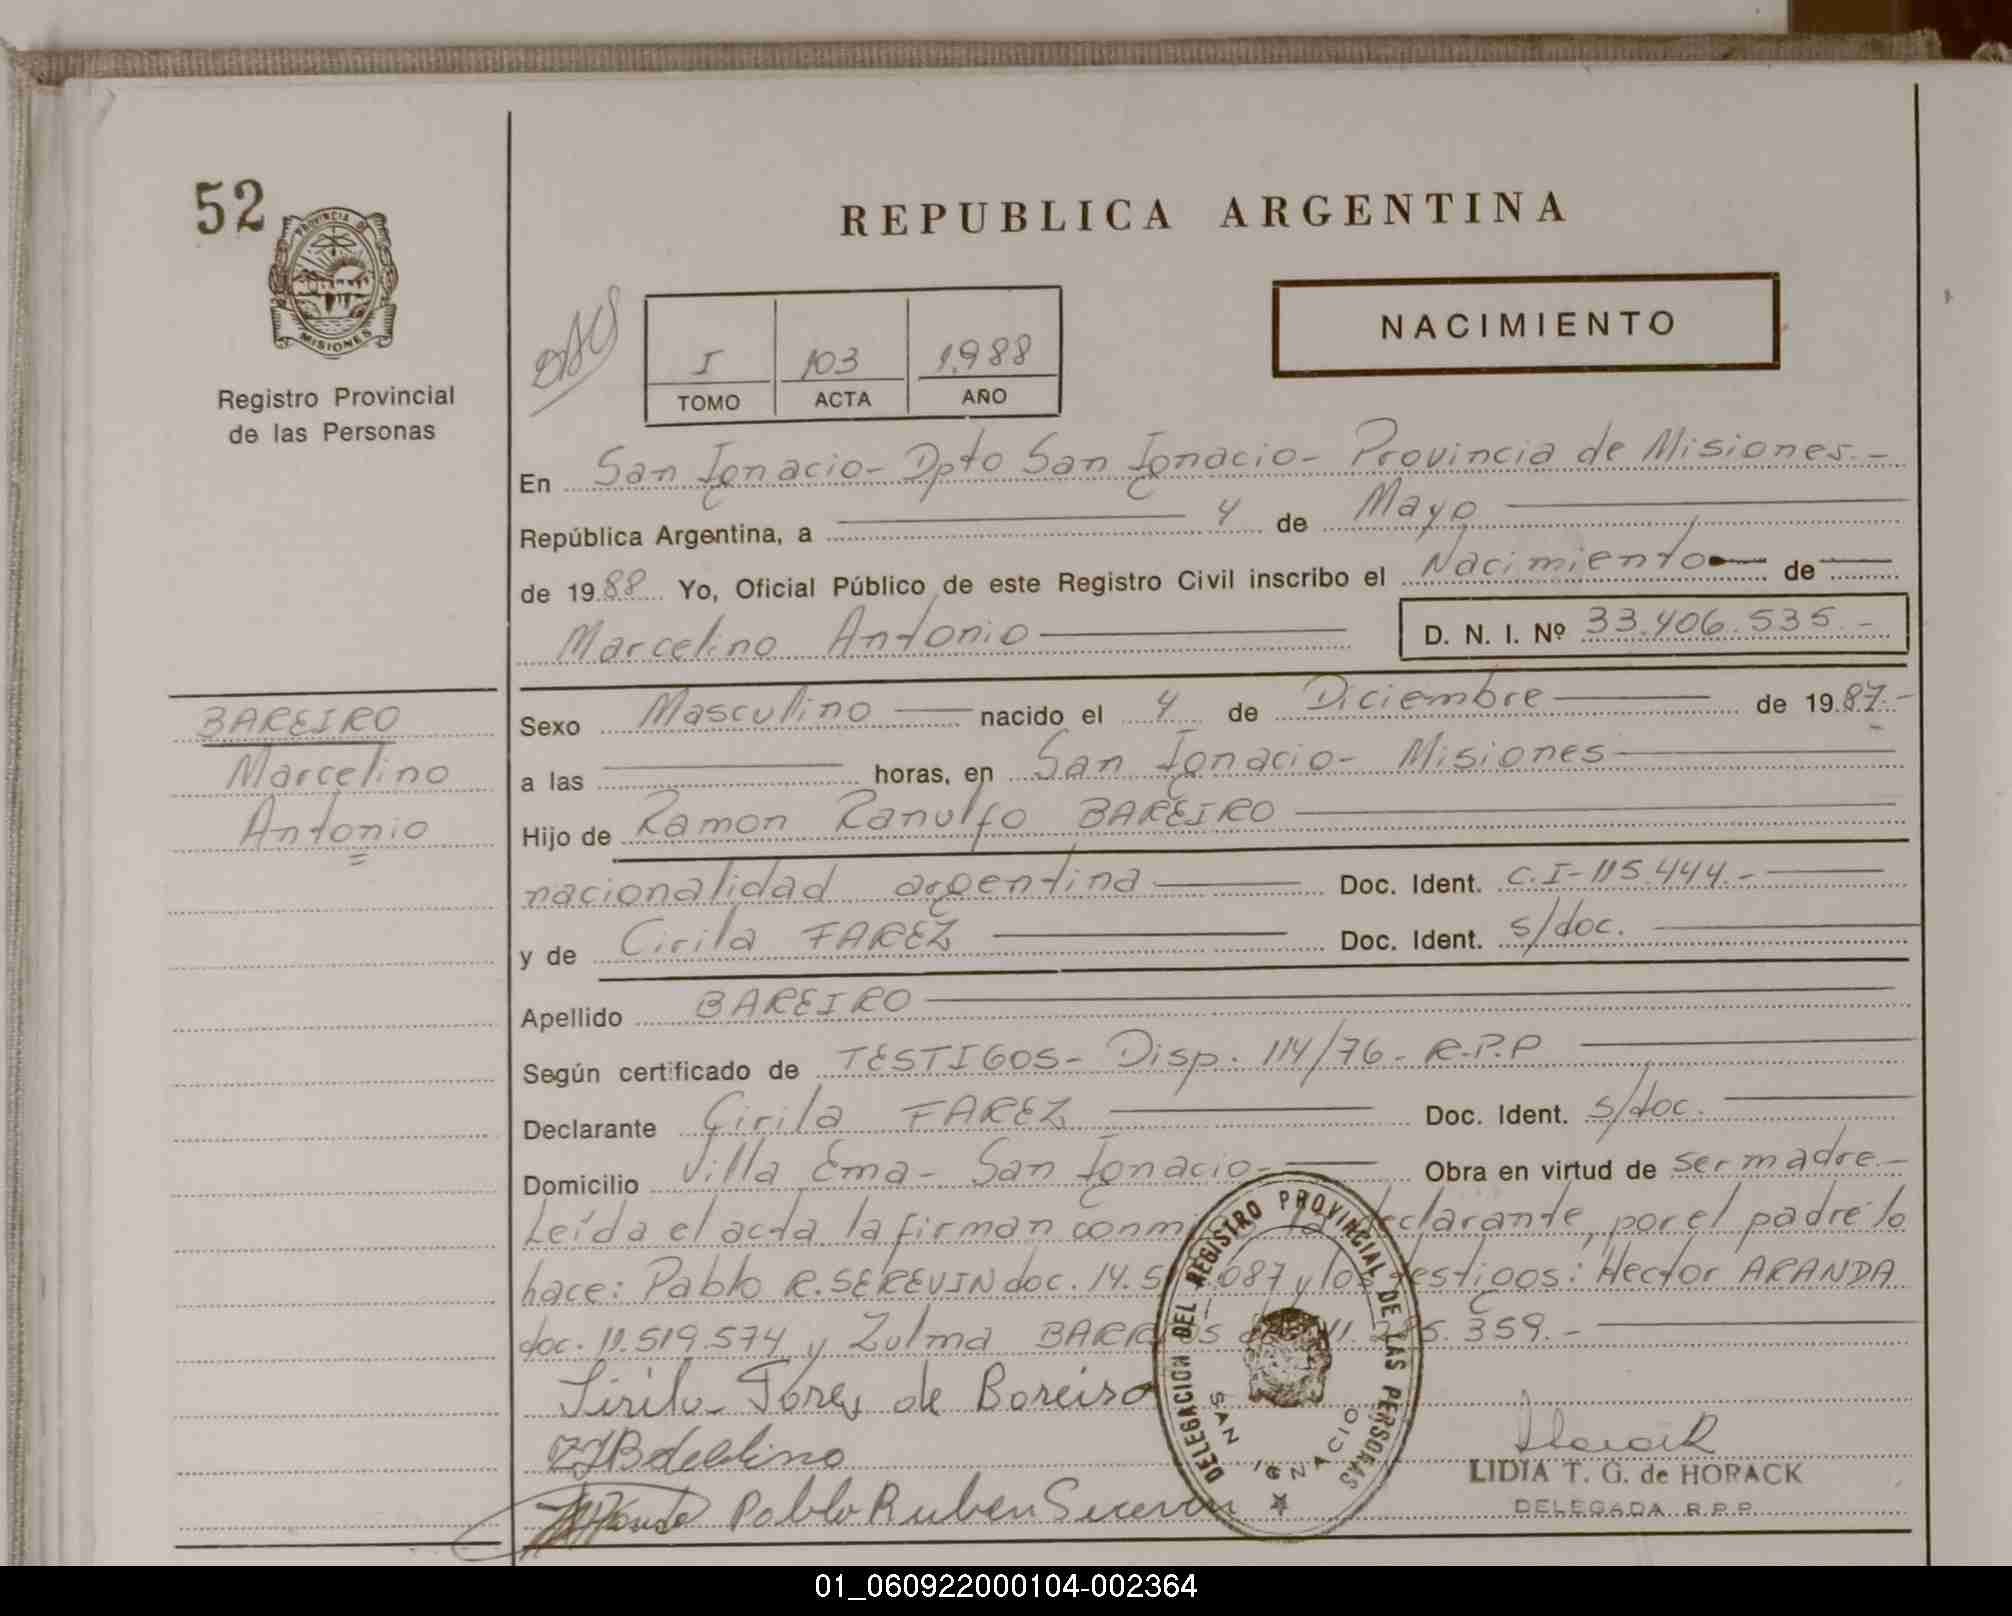 52
PROVINCIA DE
MISIONES
Registro Provincial
de las Personas
REPUBLICA ARGENTINA
I 103 1.988
TOMO ACTA AÑO
NACIMIENTO
En San Ignacio - Dpto San Ignacio - Provincia de Misiones. -
República Argentina, a 4 de Mayo
de 19 88 Yo, Oficial Público de este Registro Civil inscribo el Nacimiento de
Marcelino Antonio D. N. I. Nº 33.406.535.-
BAREIRO
Marcelino
Antonio
Sexo Masculino nacido el 4 de Diciembre de 19 87.-
a las horas, en San Ignacio - Misiones
Hijo de Ramon Ranulfo BAREIRO
nacionalidad argentina Doc. Ident. C.I-115.444.-
y de Cirila FAREZ Doc. Ident. s/doc.
Apellido BAREIRO
Según certificado de TESTIGOS - Disp. 114/76 - R.P.P
Declarante Cirila FAREZ Doc. Ident. s/doc.
Domicilio Villa Ema - San Ignacio - Obra en virtud de ser madre -
Leída el acta la firman la declarante, por el padre lo
hace: Pablo R. SEREVIN doc. 14. 087 y los testigos: Hector ARANDA
doc. 11.519.574 y Zulma 359.-
de Bareiro
Pablo Ruben
DELEGACION DEL REGISTRO PROVINCIAL DE LAS PERSONAS
SAN IGNACIO
LIDIA T. G. de HORACK
DELEGADA R.P.P.
01_060922000104-002364